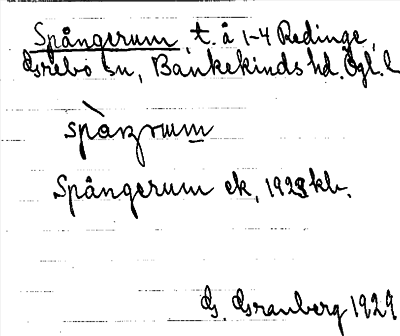 Spångerum, t. å 1-4 Redinge,
Grebo sn, Bankekinds hd. Ögl. l
spàŋrum
Spångerum ek, 1923 kb.
G. Granberg 1929